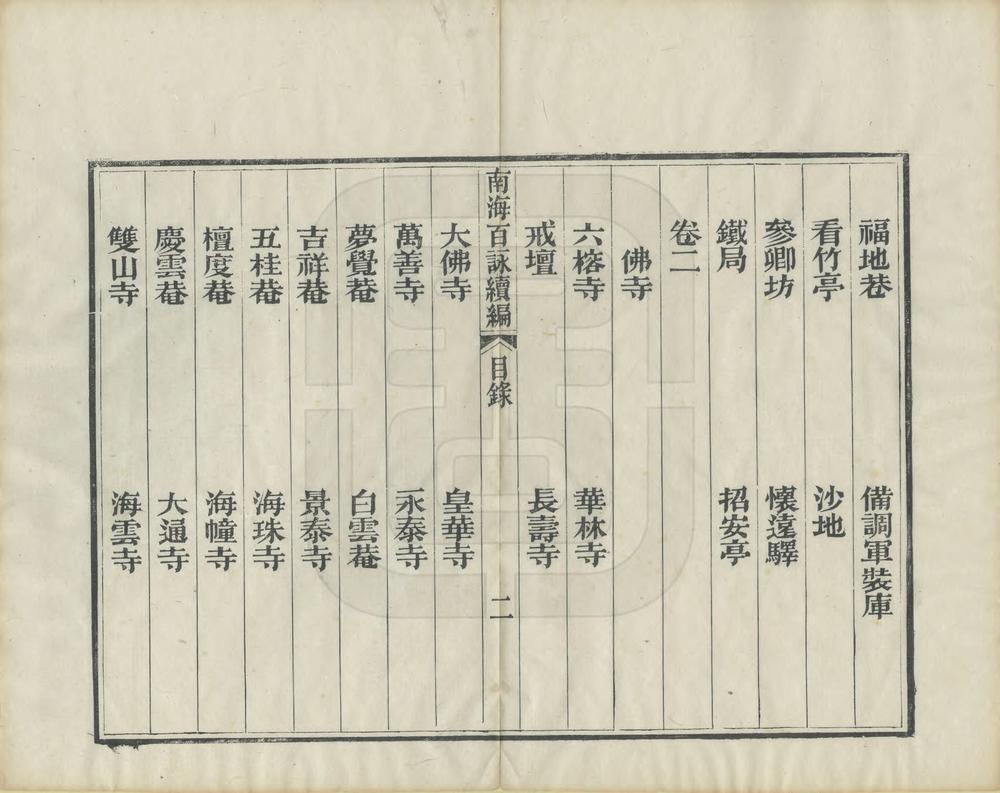 福地巷　備調軍裝庫
看竹亭　沙地
參卿坊　懷遠驛
鐵局　招安亭
卷二
佛寺
六榕寺　華林寺
戒壇　長壽寺
南海百詠續編　目錄　二
大佛寺　皇華寺
萬善寺　永泰寺
夢覺菴　白雲菴
吉祥菴　景泰寺
五桂菴　海珠寺
檀度菴　海幢寺
慶雲菴　大通寺
雙山寺　海雲寺